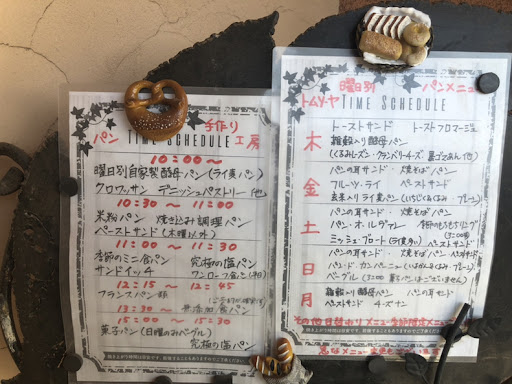 手作り
パン TIME SCHEDULE 工房
10:00～
曜日別自家製酵母パン(ライ麦パン)
クロワッサン デニッシュペストリー 他
10:30 ～ 11:00
米粉パン 焼き込み調理パン
ペーストサンド(木曜以外)
11:00 ～ 11:30
季節のミニ食パン 究極の塩パン
サンドイッチ ワンローフ食パン
12:15 ～ 12:45
フランスパン類
13:30 ～ 無添加食パン
15:00 ～ 15:30
菓子パン(日曜のみベーグル)
究極の塩パン
曜日別 パンメニュー
トムソーヤ TIME SCHEDULE
木 トーストサンド トーストフロマージュ
雑穀入り酵母パン
(くるみレーズン・クランベリーチーズ 黒ゴマあん他)
パンの耳サンド ・ 焼そばパン
金 フルーツ・ライ ペーストサンド
玄米入りライ麦パン(いちじくくるみ ・ プレーン)
パンの耳サンド ・ 焼そばパン
土 パン・オ・ルヴァン 季節のもちもちリング
ミッシュ・ブロート(ライ麦) ペーストサンド
パンの耳サンド ・ 焼そばパン ペーストサンド
日 パン・ド・カンパーニュ
ベーグル
月 雑穀入り酵母パン パンの耳サンド
ペーストサンド チーズサンド
その他日替わりメニュー・季節限定メニュー